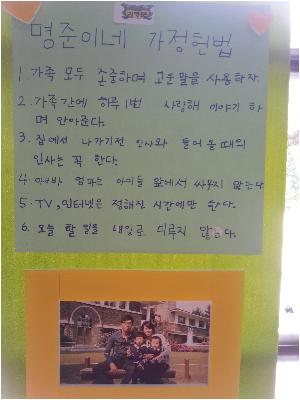 명준이네 가정헌법
1. 가족 모두 존중하며 고운말을 사용하자.
2. 가족간에 하루 1번 사랑해 이야기 하
며 안아준다.
3. 집에서 나가기전 인사와 들어 올때의
인사는 꼭 한다.
4. 아빠와 엄마는 아이들 앞에서 싸우지 않는다
5. TV, 인터넷은 정해진 시간에만 한다.
6. 오늘 할 일을 내일로 미루지 않는다.